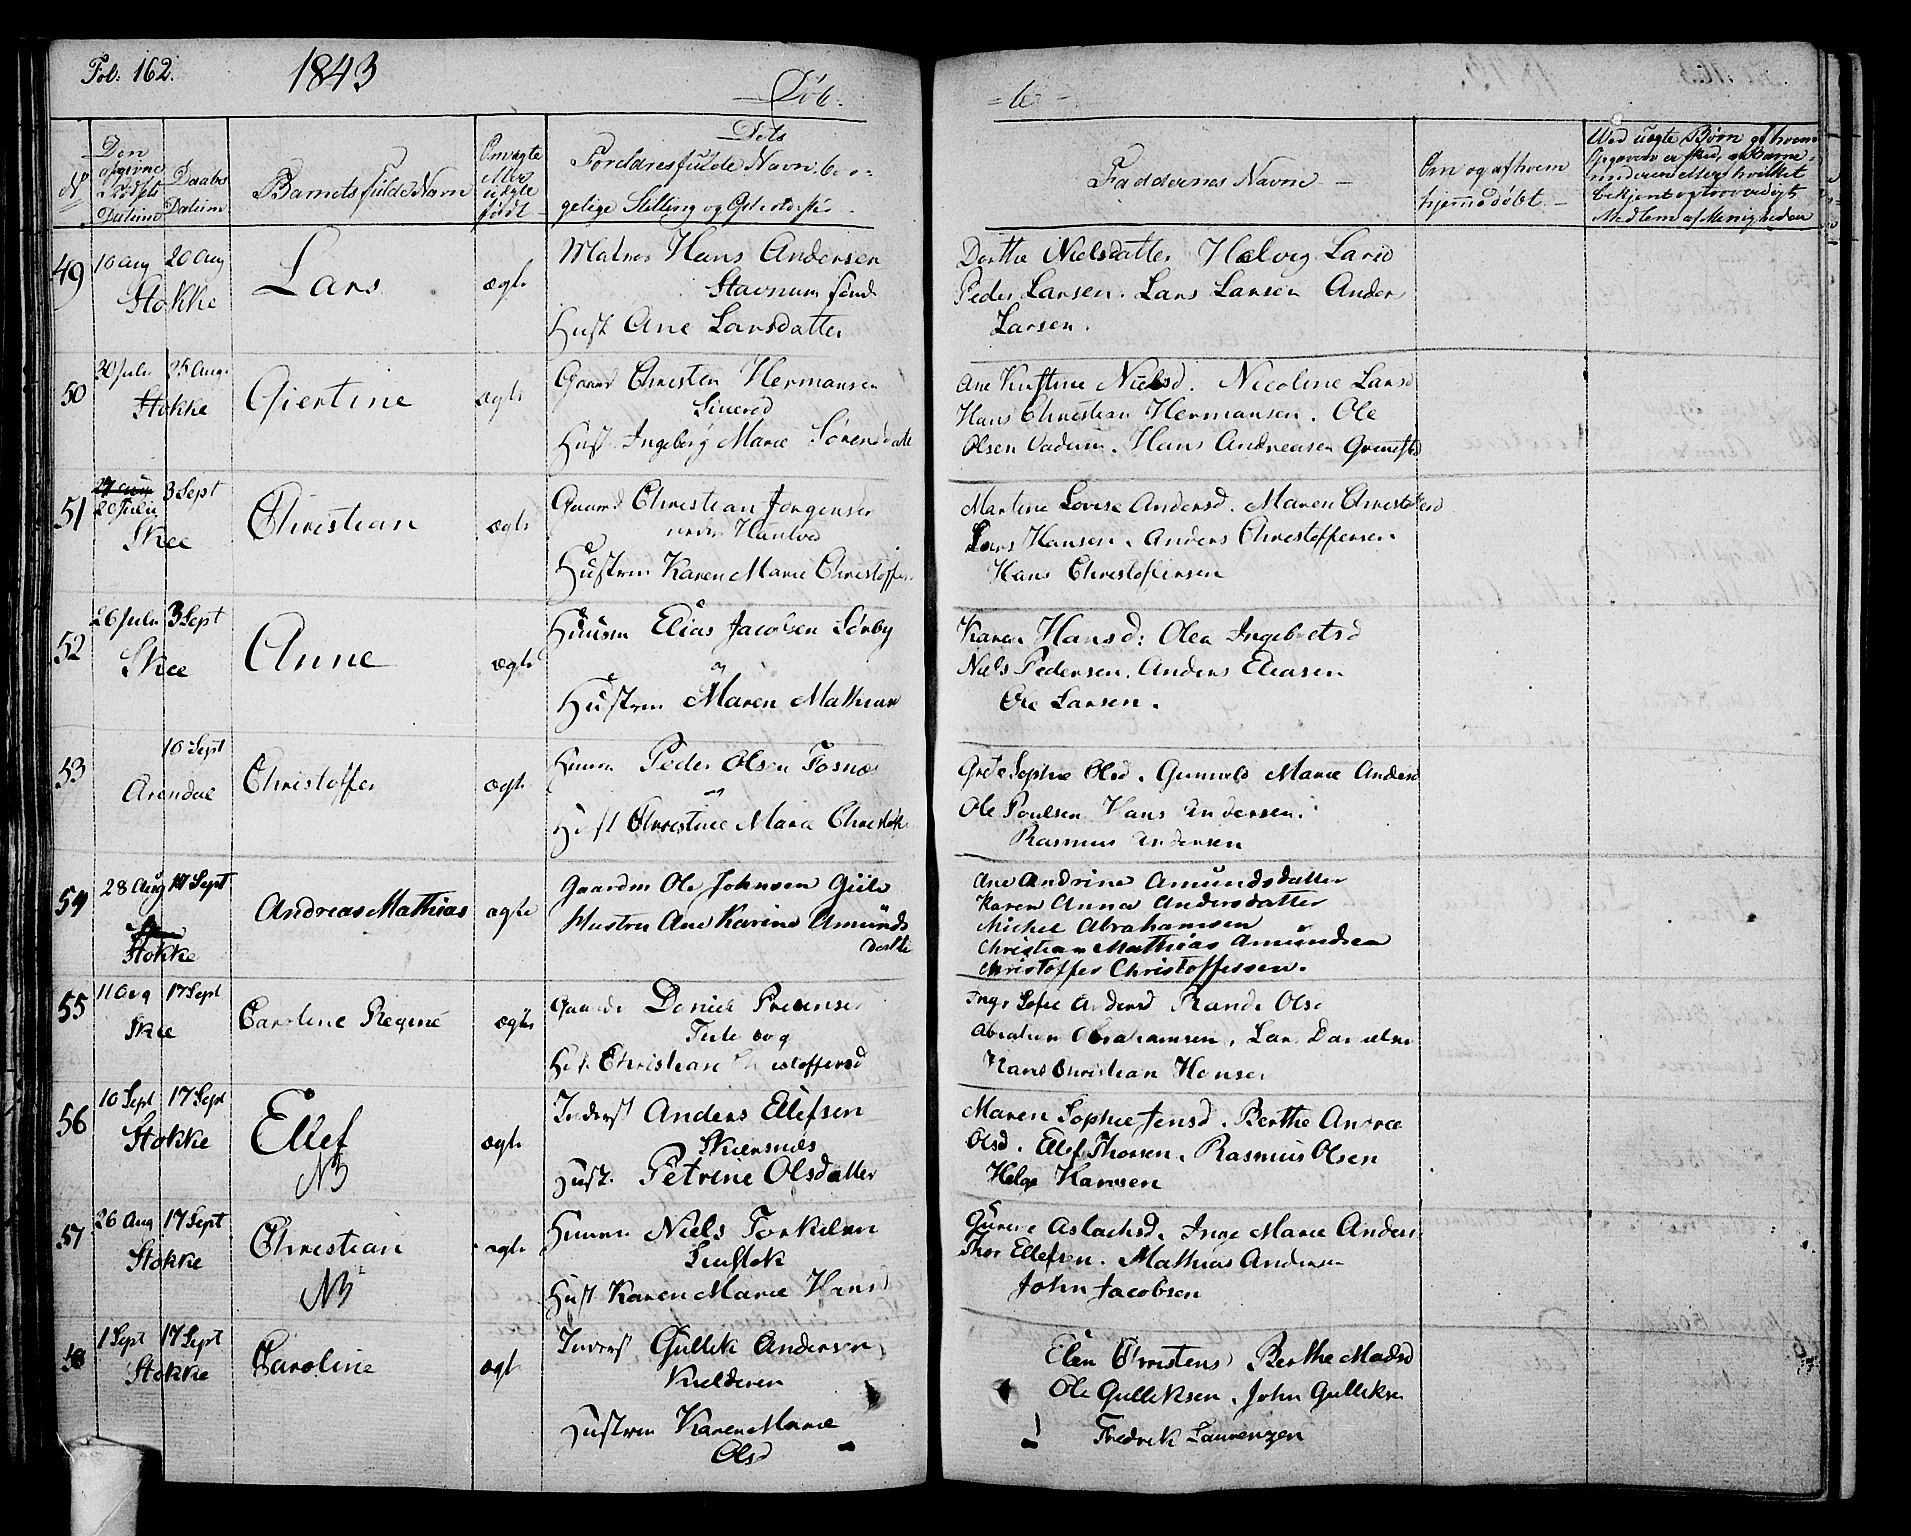 Fol: 162. 1843
Døb.
Den opgivne Fødsels Datum
Daabs Datum
Barnets fulde Navn
Om ægte eller uægte født
Dets Forældres fulde Navn, bor-
gelige Stilling og
Faddernes Navne
Om og af hvem
hjemmedøbt
Ved uægte Børn af hvem
Opgaven er skeet, om Barne-
bekjent og troværdigt
Medlem af Menigheden
49 10 Aug 20 Aug
Stokke
Lars
ægte
Hans Andersen
Stavnum
Hust Ane Larsdatter
Dorthe Nielsdatter Helvig Larsd
Peder Larsen. Lars Larsen Anders
Larsen.
50 30 Juli 25 Aug.
Stokke
Giertine
ægte
Gaard Christen Hermansen
Hust. Ingeborg Marie Sørensdatt
Ane Kirstine Nielsd. Nicoline Larsd
Hans Christian Hermansen. Ole
Olsen Vadum. Hans Andreasen Grimstad
51 20 Julii 3 Sept
Skee
Christian
ægte
Gaard Christian Jørgensen
Hustrue Karen Marie Christoffers
Martine Lovise Andersd. Maren Christoffersd
Lars Hansen. Anders Christoffersen.
Hans Christofersen
52 26 Juli 3 Sept
Skee
Anne
ægte
Huusm Elias Jacobsen Sørby
og
Hustrue Maren Mathiasd
Karen Hansd: Olea Ingebretsd
Niels Pedersen. Anders Eliasen
Ole Larsen.
53 10 Sept
Arendal
Christoffer
ægte
Huusm Peder Olsen Fosnæs
og
Hust Christine Marie Christoff
Grete Sophie Olsd. Gunnild Marie Andersd
Ole Poulsen Hans Andersen.
Rasmus Andersen
54 28 Aug 17 Sept
Stokke
Andreas Mathias
ægte
Gaardm Ole Johnsen Giile
Hustru Ane Karine Amunds
datte
Ane Andrine Amundsdatter
Karen Anna Andersdatter
Michel Abrahamsen
Christian Mathias Amundsen
Christoffer Christoffersen.
55 11 Aug 17 Sept
Skee
Caroline Regine
ægte
Daniel
og
Christiane Christoffersd
Inger Sofie Andersd Rande Olsd
Abraham Abrahamsen. Lars Danielsen
Hans Christian Hansen
56 10 Sept 17 Sept
Stokke
Ellef
NB
ægte
Inderst Anders Ellefsen
Skiersnæs
Hust. Petrine Olsdatter
Maren Sophie Jensd. Berthe Andrea
Olsd. Ellef Thorsen. Rasmus Olsen
Helge Hansen
57 26 Aug 17 Sept
Stokke
Christian
NB
ægte
Huusm Niels Torkelsen
Hust Karen Marie Hansd
Gurine Aslachsd. Inge Marie Anders
Thor Ellefsen. Mathias Andersen
John Jacobsen
58 1 Sept 17 Sept
Stokke
Caroline
ægte
Inderst Gullik Andersen
Kielderen
Hustrue Karen Marie
Olsd
Elen Christensd Berthe Madsd
Ole Gulliksen. John Gulliksen
Fredrik Laurenzen